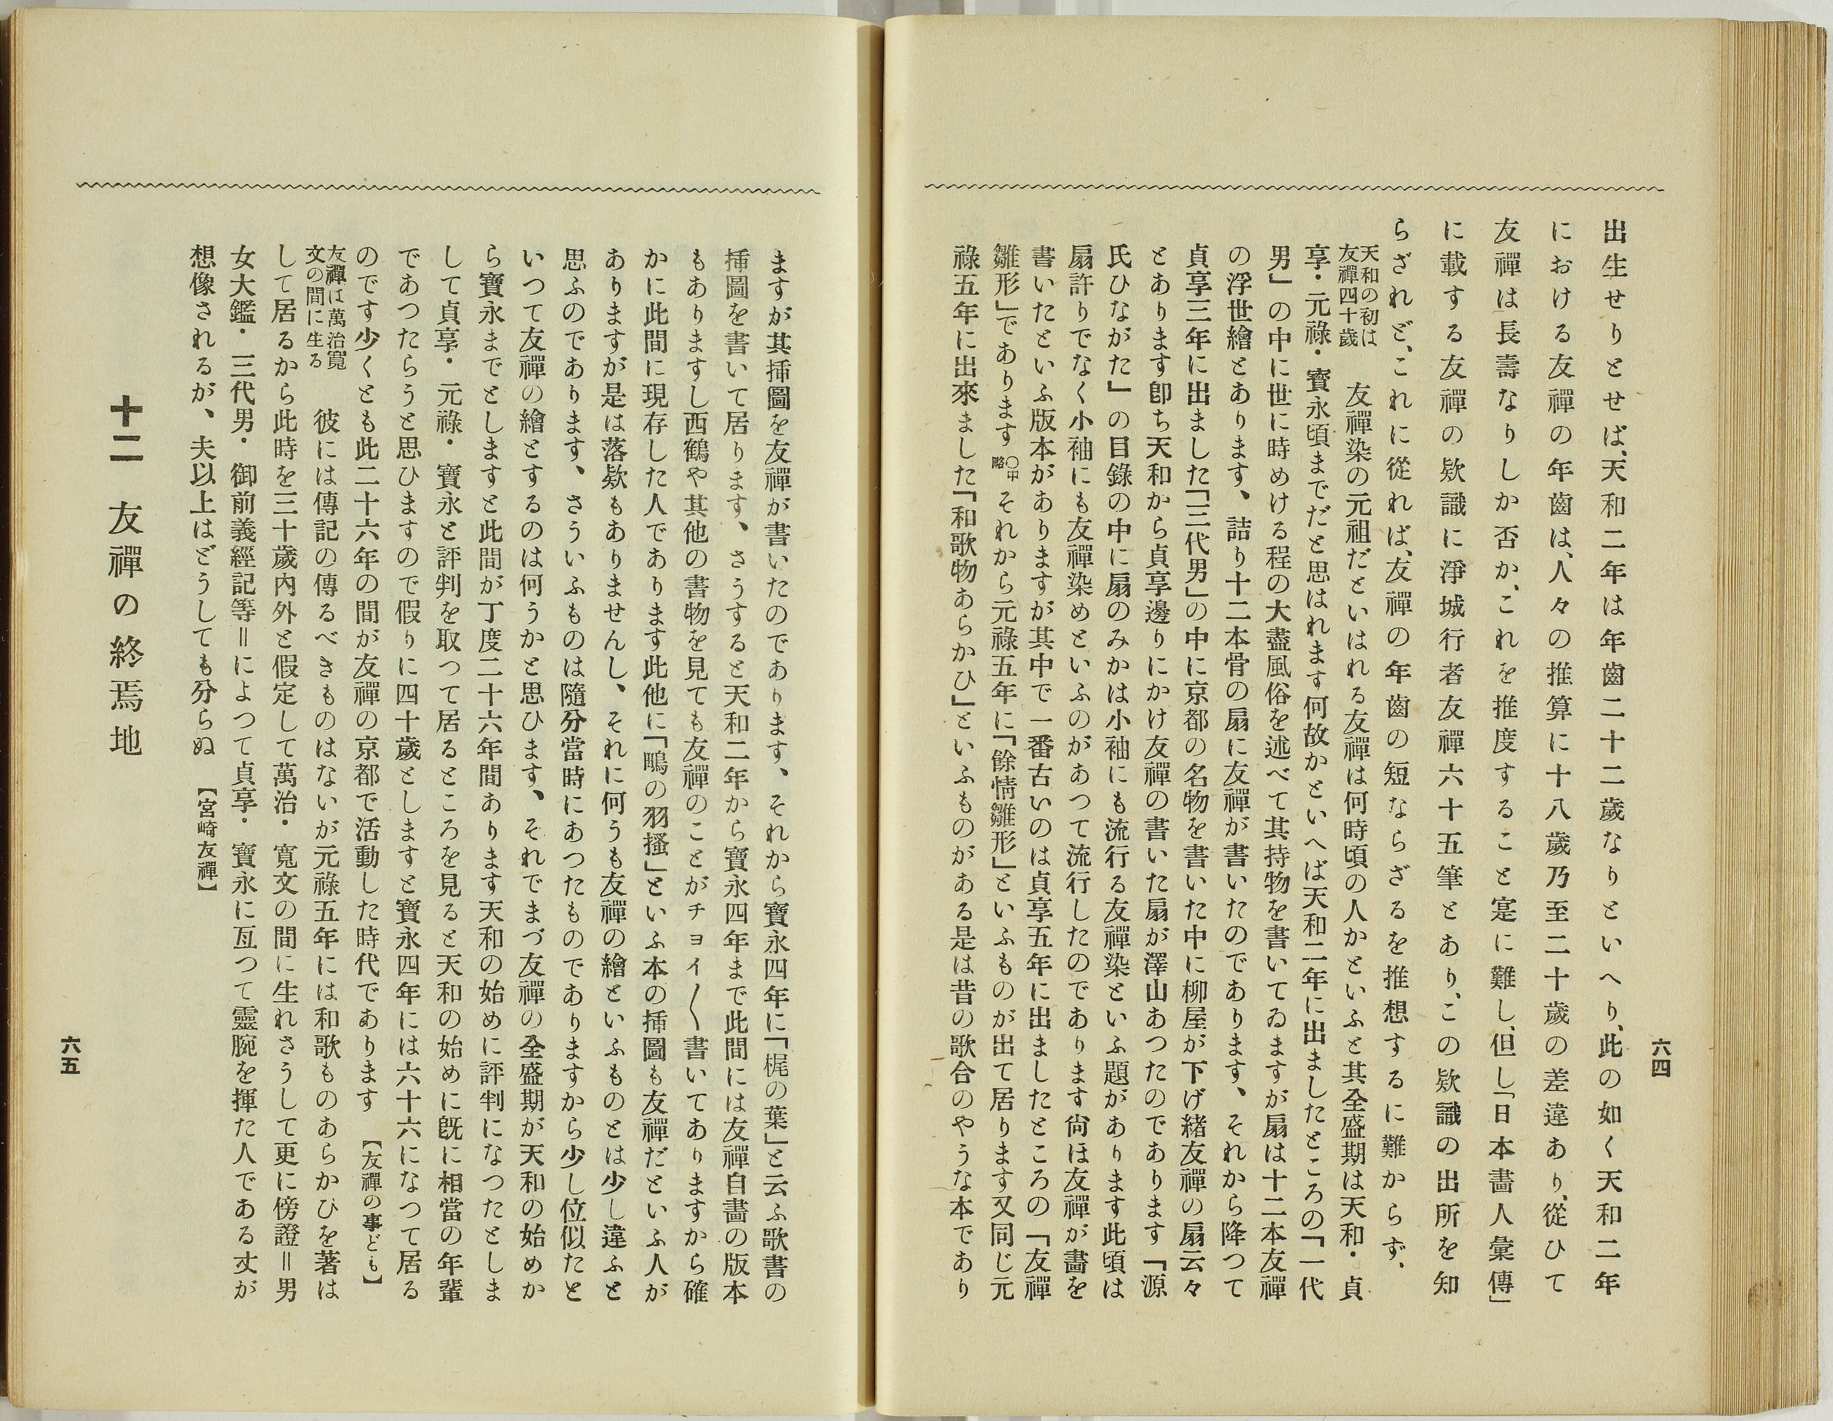 六四
出生せりとせば、天和二年は年齒二十二歲なりといへり、此の如く天和二年
における友禪の年齒は、人々の推算に十八歲乃至二十歲の差違あり、從ひて
友禪は長壽なりしか否か、これを推度すること寔に難し、但し「日本畵人彙傳」
に載する友禪の欵識に淨城行者友禪六十五筆とあり、この欵識の出所を知
らざれど、これに從れば、友禪の年齒の短ならざるを推想するに難からず、
天和の初は
友禪四十歲
友禪染の元祖だといはれる友禪は何時頃の人かといふと其全盛期は天和・貞
享・元祿・寶永頃までだと思はれます何故かといへば天和二年に出ましたところの「一代
男」の中に世に時めける程の大盡風俗を述べて其持物を書いてゐますが扇は十二本友禪
の浮世繪とあります、詰り十二本骨の扇に友禪が書いたのであります、それから降つて
貞享三年に出ました「三代男」の中に京都の名物を書いた中に柳屋が下げ緖友禪の扇云々
とあります卽ち天和から貞享邊りにかけ友禪の書いた扇が澤山あつたのであります「源
氏ひながた」の目錄の中に扇のみかは小袖にも流行る友禪染といふ題があります此頃は
扇許りでなく小袖にも友禪染めといふのがあつて流行したのであります尙ほ友禪が畵を
書いたといふ版本がありますが其中で一番古いのは貞享五年に出ましたところの「友禪
雛形」であります〇中略それから元祿五年に「餘情雛形」といふものが出て居ります又同じ元
祿五年に出來ました「和歌物あらかひ」といふものがある是は昔の歌合のやうな本であり
ますが其揷圖を友禪が書いたのであります、それから寶永四年に「梶の葉」と云ふ歌書の
揷圖を書いて居ります、さうすると天和二年から寶永四年まで此間には友禪自畵の版本
もありますし西鶴や其他の書物を見ても友禪のことがチョイ〱書いてありますから確
かに此間に現存した人であります此他に「鴫の羽搔」といふ本の揷圖も友禪だといふ人が
ありますが是は落欵もありませんし、それに何うも友禪の繪といふものとは少し違ふと
思ふのであります、さういふものは隨分當時にあつたものでありますから少し位似たと
いつて友禪の繪とするのは何うかと思ひます、それでまづ友禪の全盛期が天和の始めか
ら寶永までとしますと此間が丁度二十六年間あります天和の始めに評判になつたとしま
して貞享・元祿・寶永と評判を取つて居るところを見ると天和の始めに旣に相當の年輩
であつたらうと思ひますので假りに四十歲としますと寶永四年には六十六になつて居る
のです少くとも此二十六年の間が友禪の京都で活動した時代であります 【友禪の事ども】
友禪は萬治寬
文の間に生る
彼には傳記の傳るべきものはないが元祿五年には和歌ものあらかひを著は
して居るから此時を三十歲內外と假定して萬治・寬文の間に生れさうして更に傍證＝男
女大鑑・三代男・御前義經記等＝によつて貞享・寶永に亙つて靈腕を揮た人である丈が
想像されるが、夫以上はどうしても分らぬ 【宮崎友禪】
十二 友禪の終焉地
六五